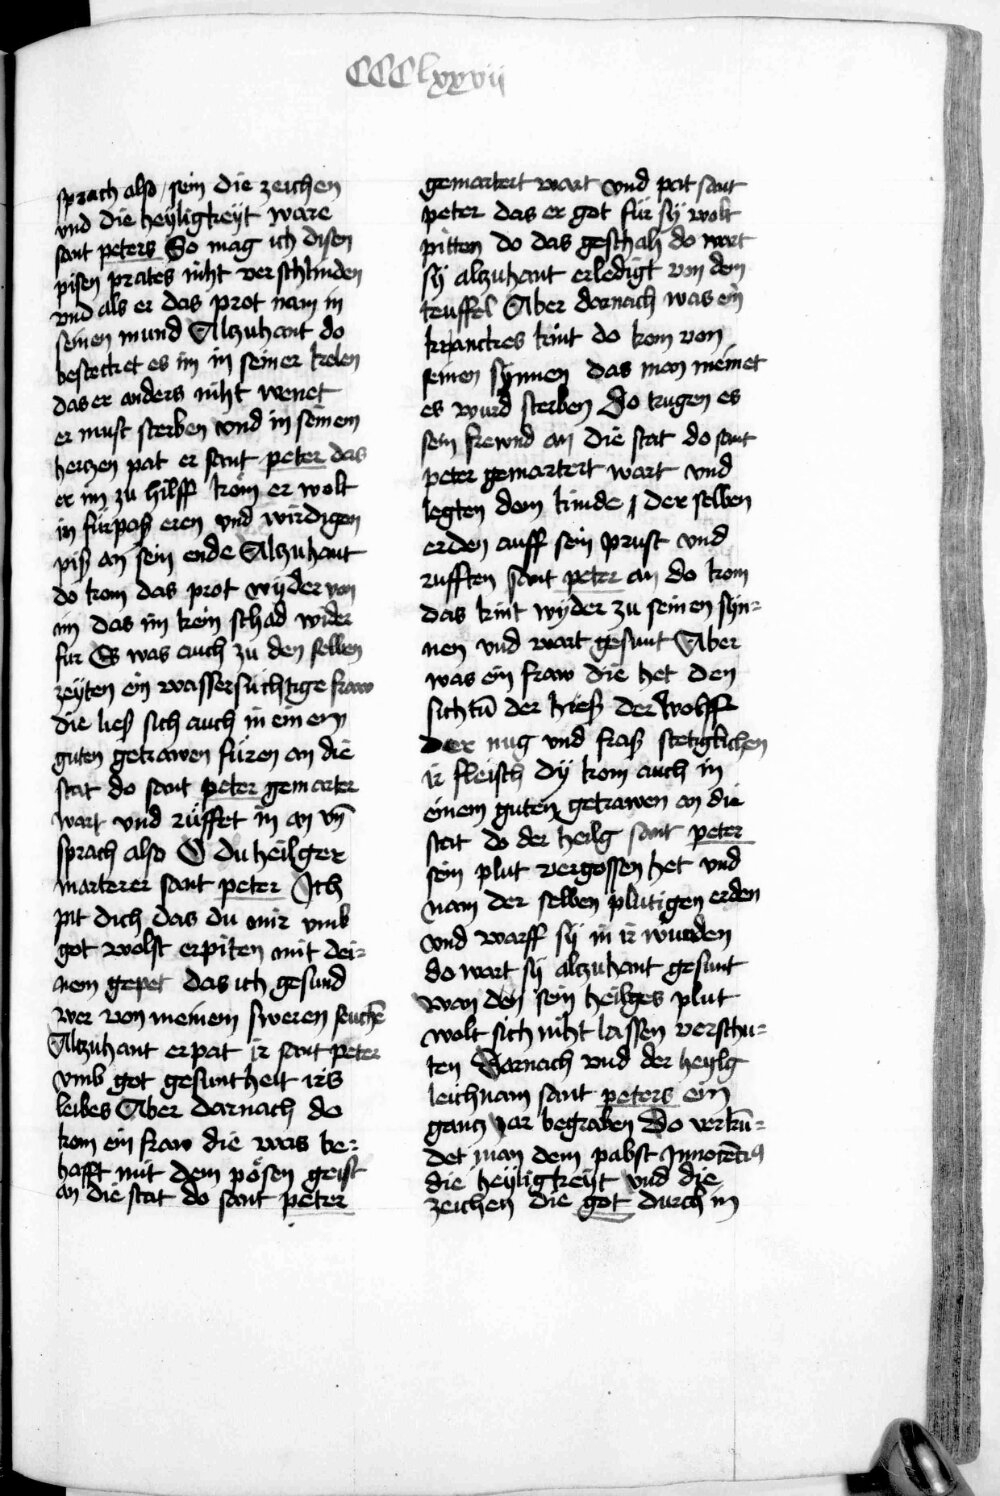 CCClxxvij
sprach also / sein die zeichen
vnd die heyligkeyt ware
sant peters So mag ich disen
pisen prates niht verschlinden
vnd als er das prot nam in
seinen mund Alzuhant do
bestecket es im in seiner kelen
das er anders niht wenet
er must sterben vnd in seinem
hertzen pat er sant peter das
er im zu hilff kom er wolt
in fürpaß eren vnd wirdigen
piß an sein ende Alzuhant
do kom das prot wyder von
im das im kein schad wider
fur Es was auch zu den selben
zeyten ein wassersuchtige fraw
die ließ sich auch in einem
guten getrawen füren an die
stat do sant peter gemarter
wart vnd rüffet in an vn̄
sprach also O du heilger
marterer sant peter Ich
pit dich das du mir vmb
got wolst erpiten mit dei-
nem gepet das ich gesund
wer von meinem sweren seuchē
Alzuhant erpat ir sant peter
vmb got gesuntheit irs
leibes Aber darnach do
kom ein fraw die was be-
hafft mit dem pösen geist
an die stat do sant peter
gemartert wart vnd pat sant
peter das er got für sÿ wolt
pitten do das geschah do wart
sÿ alzuhant erledigt von dem
teuffel Aber darnach was ein
kranckes kint do kom von
seinen synnen das man meinet
es wurd sterben Do trugen es
sein frewnd an die stat do sant
peter gemartert wart vnd
legten dem kinde der selben
erden auff sein prust vnd
rufften sant peter an do kom
das kint wyder zu seinen syn-
nen vnd wart gesunt Aber
was ein fraw die het den
sichtū der hieß der wolff
der nug vnd fraß stetiglichen
ir fleisch dÿ kom auch in
einem guten getrawen an die
stat do der heilg sant peter
sein plut vergossen het vnd
nam der selben plutigen erden
vnd warff sÿ in ir wunden
do wart sÿ alzuhant gesunt
wan den sein heilges plut
wolt sich niht lassen verschu-
ten Darnach vnd der heylg
leichnam sant peters ein
gantz iar begraben Do verkū-
det man dem pabst Innocēciꝰ
die heyligkeyt vnd die
zeichen die got durch in